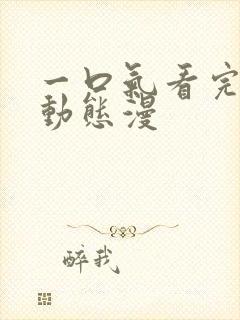 一口氣看完
動態漫
醉我